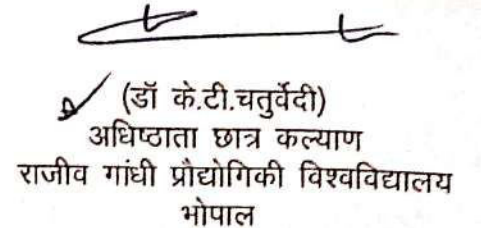 (डॉ के.टी.चतुर्वेदी)
अधिष्ठाता छात्र कल्याण
राजीव गांधी प्रौद्योगिकी विश्वविद्यालय
भोपाल